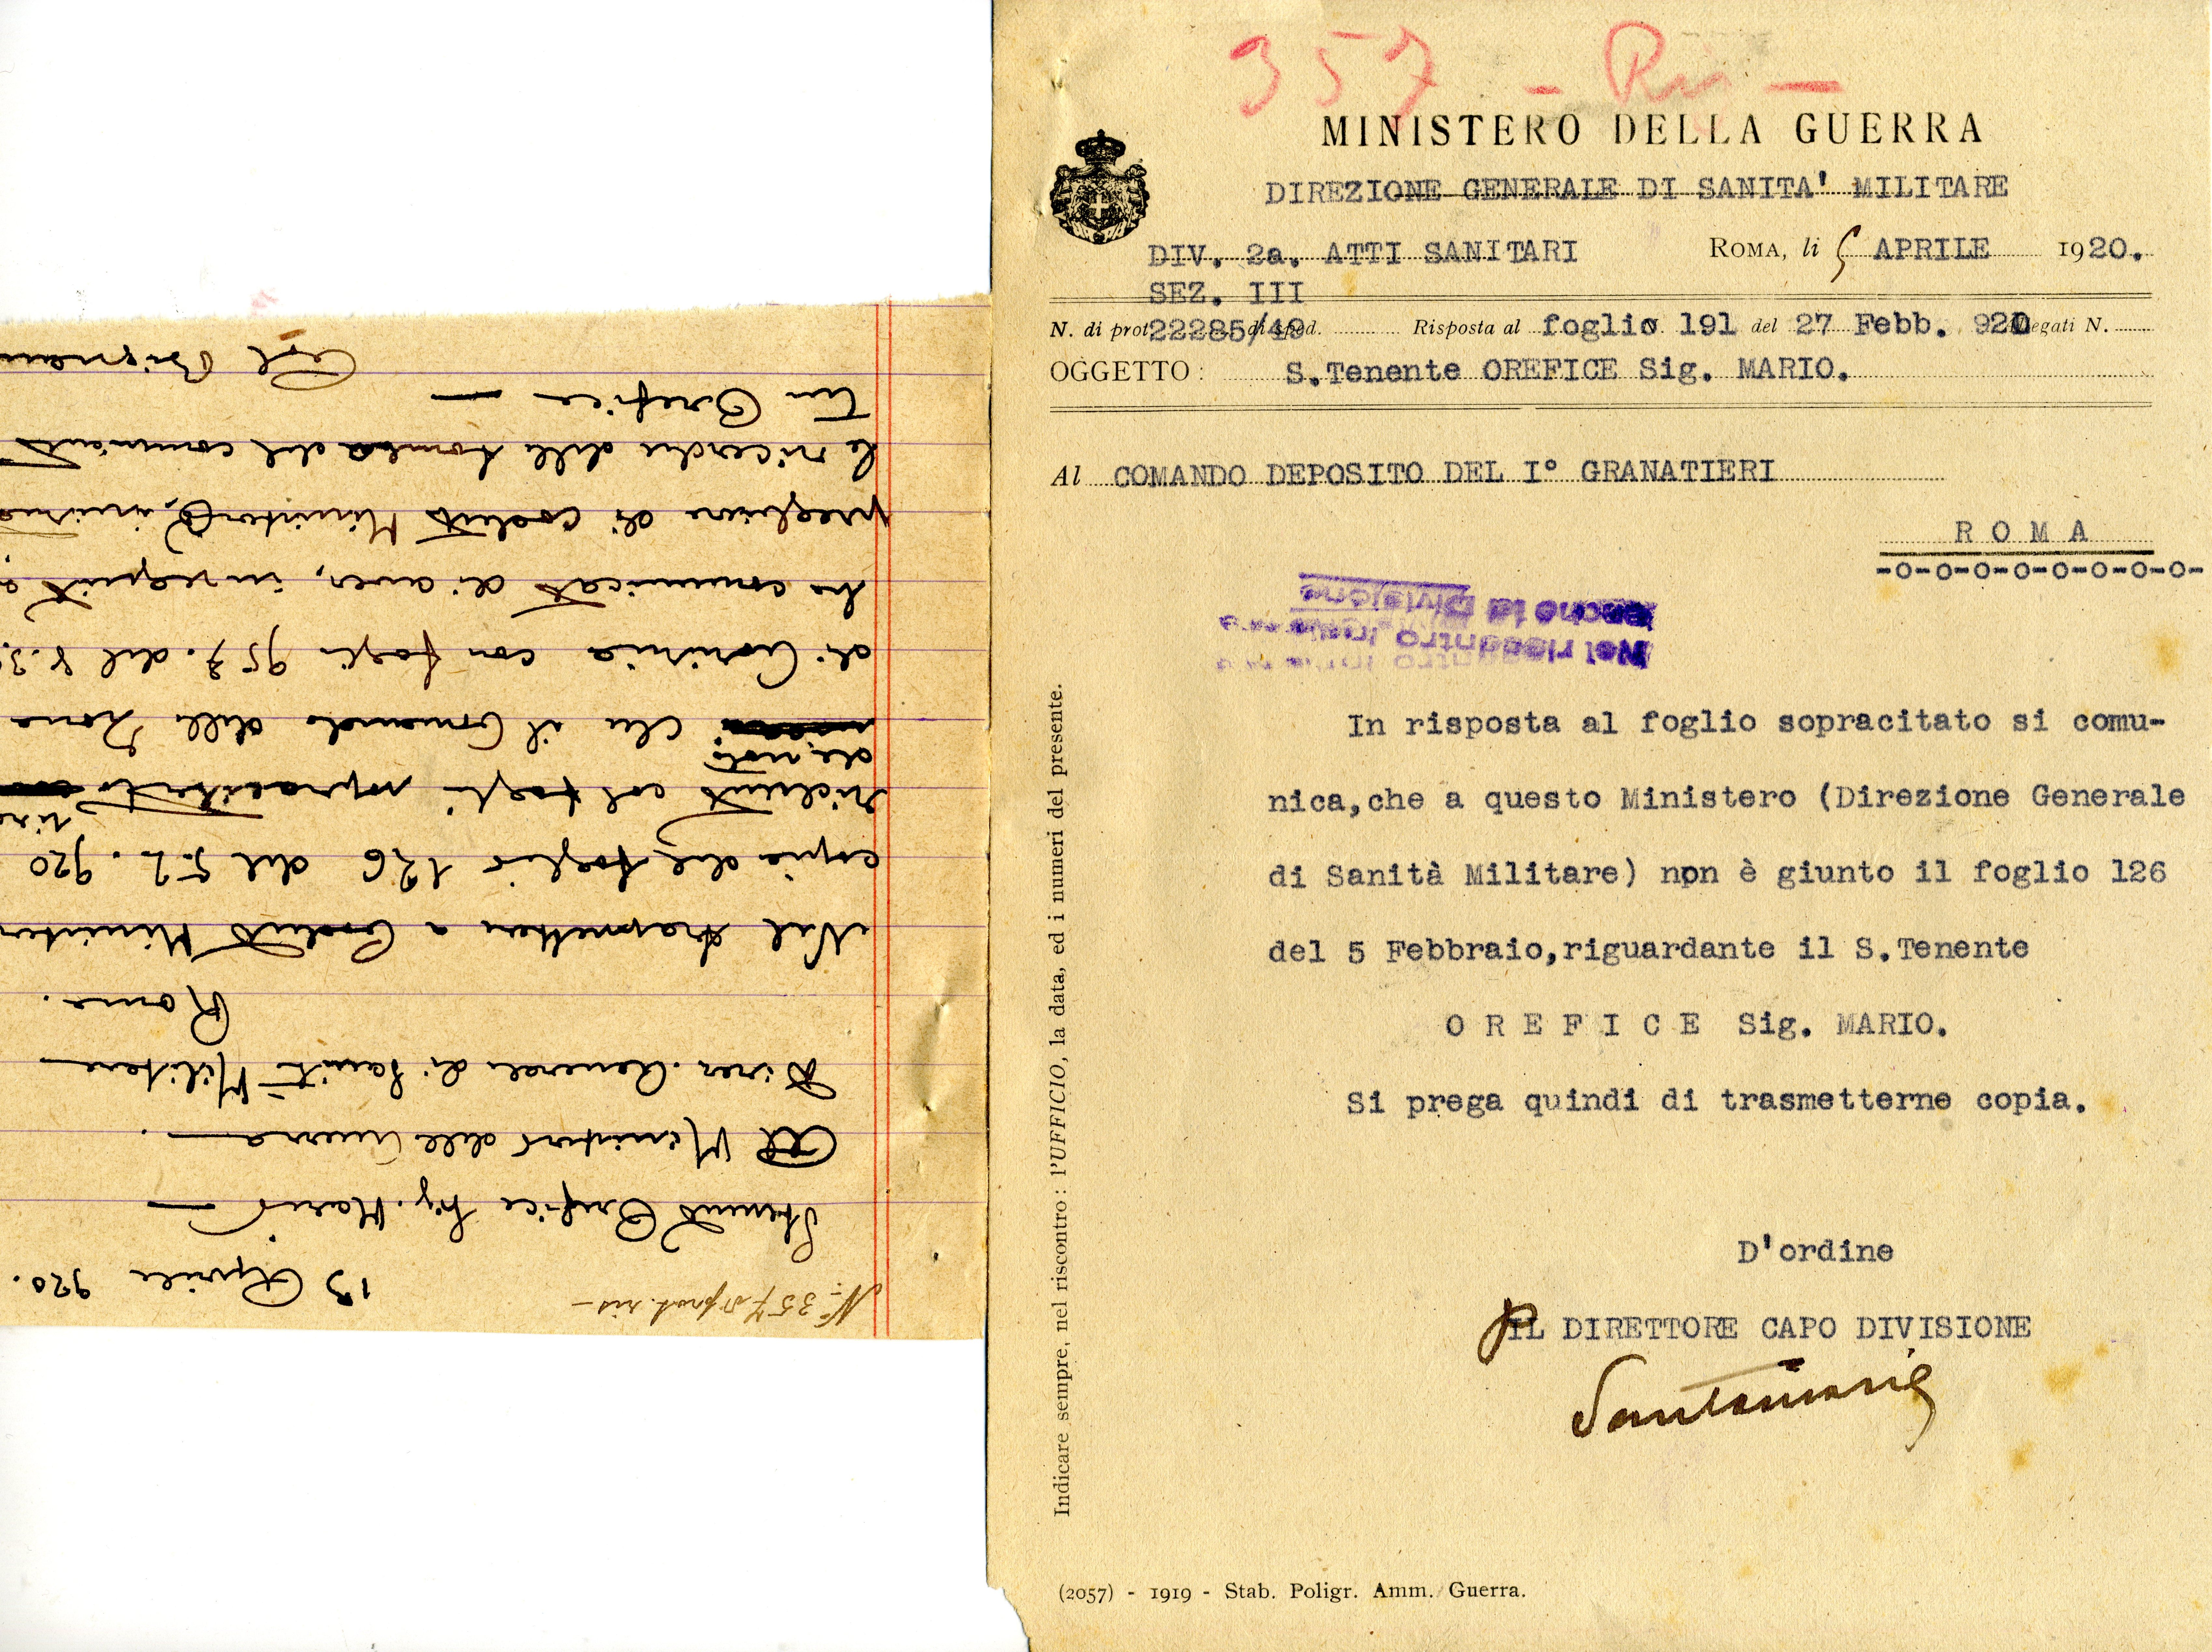 357 - Ris -
MINISTERO DELLA GUERRA
DIREZIONE GENERALE DI SANITA' MILITARE
DIV. 2a. ATTI SANITARI
ROMA, li 5 APRILE 1920.
SEZ. III
N. di prot. 22285/49 di sped. Risposta al foglio 191 del 27 Febb. 920 Allegati N.
OGGETTO: S.Tenente OREFICE Sig. MARIO.
Al COMANDO DEPOSITO DEL I° GRANATIERI
R O M A
-O-O-O-O-O-O-O-O-
Nel riscontro
anche la Divisione
In risposta al foglio sopracitato si comu-
nica,che a questo Ministero (Direzione Generale
di Sanità Militare) non è giunto il foglio 126
del 5 Febbraio,riguardante il S.Tenente
O R E F I C E Sig. MARIO.
Si prega quindi di trasmetterne copia.
D'ordine
p IL DIRETTORE CAPO DIVISIONE
Santamaria
Indicare sempre, nel riscontro: l'UFFICIO, la data, ed i numeri del presente.
(2057) - 1919 - Stab. Poligr. Amm. Guerra.
N° 357 prot. ris -
13 Aprile 920.
Stenente Orefice Sig. Mario
Al Ministero della Guerra
Direz. Generale di Sanità Militare
Roma.
Nel trasmettere a Codesto Minister
copia del foglio 126 del 5.2.920
richiesto col foglio sopracitato
che il Comando della Zona
di Gorizia con foglio 957. del 8.3.
ha comunicato di aver, in seguito a
preghiera di codesto Ministero,
le ricerche della tomba del
Ten Orefice
Col